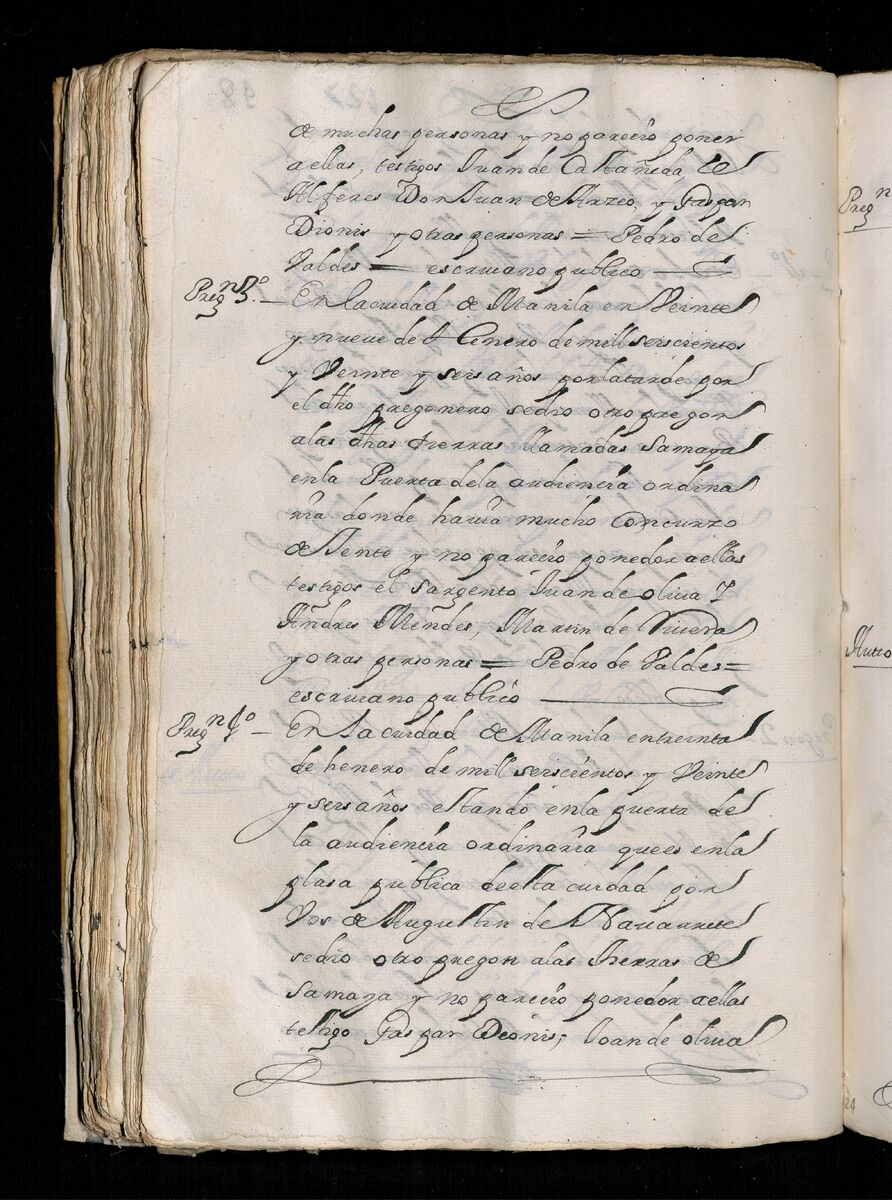 de muchas personas y no parecio poner
aellas, testigos Juan de Castañeda, el
Alferes Don Juan de Arzeo, y Gaspar
Dionis y otras personas = Pedro de
Valdes = escriuano publico
Preg.n
En la ciudad de Manila en Veinte
y nueve de Henero de mill seiscientos
y Veinte y seis años por la tarde por
el dho pregonero sedio otro pregon
alas dhas tierras llamadas Samaya
en la Puerta dela audiencia ordina
ria donde hauia mucho Concurzo
de Jente y no parecio ponedor aellas
testigos el sargento Juan de oliua y
Andres Mendes, Martin de Viuera
y otras personas = Pedro de Valdes =
escriuano publico
Preg.n
En La ciudad de Manila entreinta
de henero de mill seiscientos y Veinte
y seis años estando en la puerta de
la audiencia ordinaria que es en la
plasa publica de esta ciudad por
Vos de Augustin de Nauarrete
sedio otro pregon alas tierras de
Samaya y no parecio ponedor aellas
testigo Gaspar Dionis, Joan de oliua
Preg.n
Autto